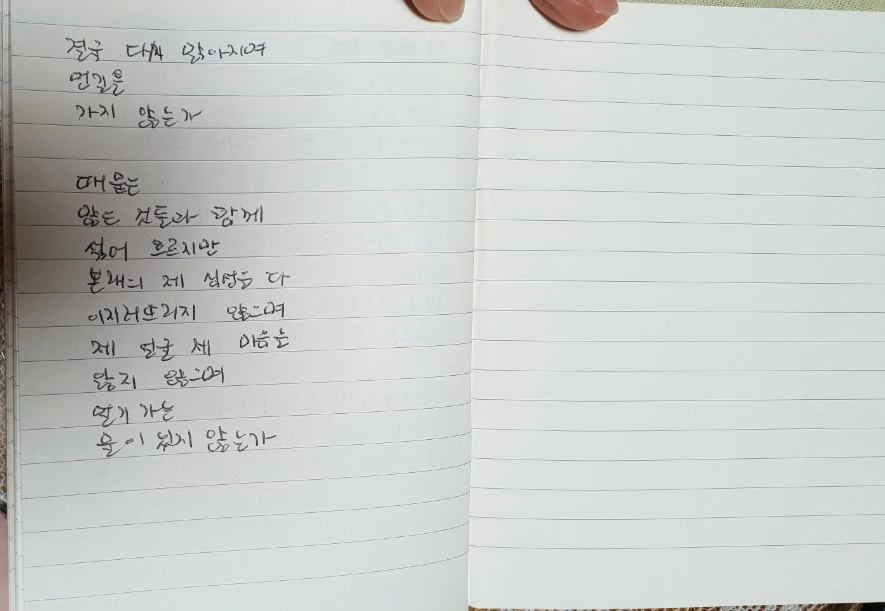 결국 다시 맑아지며
먼길을
가지 않는가

때 묻은
많은 것들과 함께
섞여 흐르지만
본래의 제 심성을 다
이지러뜨리지 않으며
제 얼굴 제 마음을
잃지 않으며
멀리 가는
물이 있지 않는가